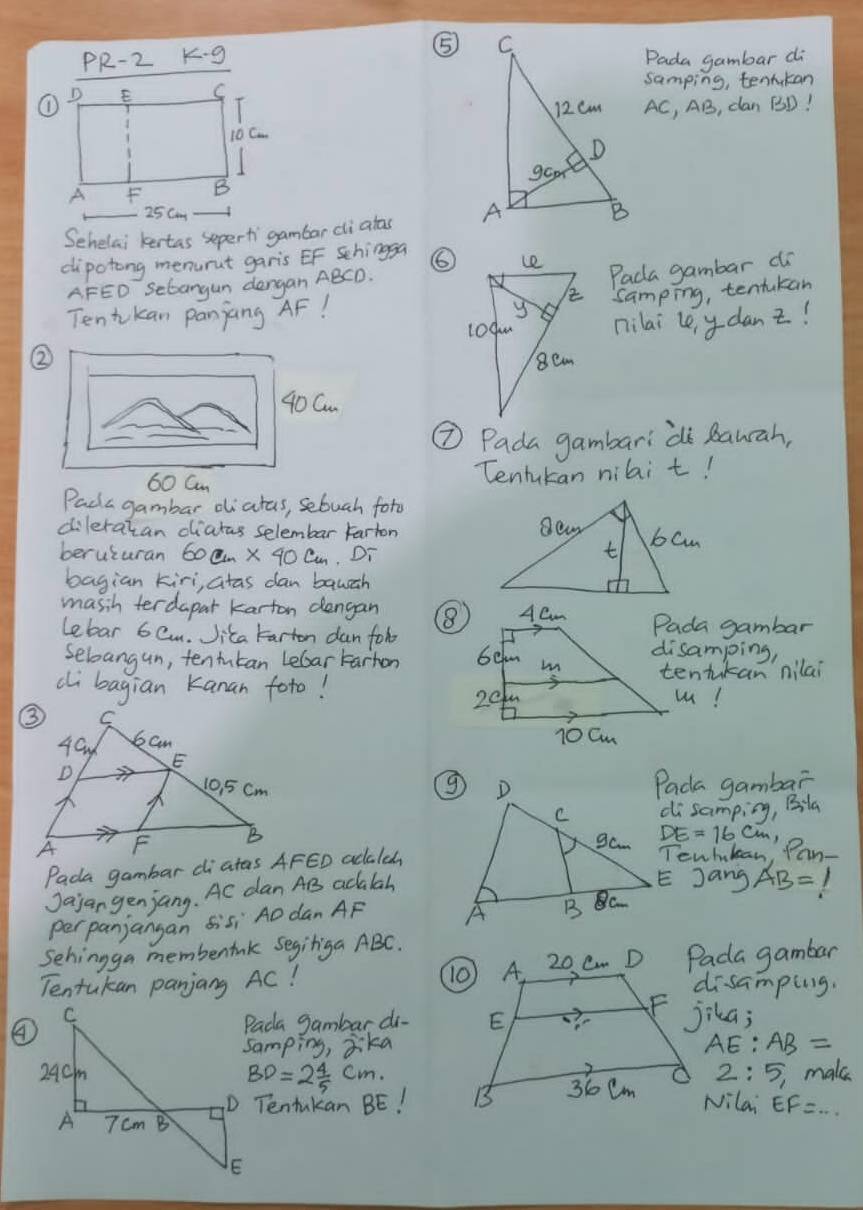 PR-2 K-9
① D E C
10 Cm
A F B
25 Cm
Sehelai kertas seperti gambar di atas
dipotong menurut garis EF sehingga
AFED sebangun dengan ABCD.
Tentukan panjang AF!
②
40 Cm
60 Cm
Pada gambar di atas, sebuah foto
diletakan diatas selembar karton
berukuran 60 cm × 40 cm. Di
bagian kiri, atas dan bawah
masih terdapat karton dengan
lebar 6 cm. Jika karton dan foto
sebangun, tentukan lebar karton
di bagian kanan foto!
③ C
4 Cm 6 cm
D E
10,5 Cm
A F B
Pada gambar di atas AFED adalah
Jajar genjang. AC dan AB adalah
perpanjangan sisi AD dan AF
sehingga membentuk segitiga ABC.
Tentukan panjang AC!
④ C
24 Cm
A 7 Cm B D
E
Pada gambar di-
samping, jika
BD = 2 4/5 cm.
Tentukan BE!
⑤ C
12 cm
D
9 cm
A B
Pada gambar di
samping, tentukan
AC, AB, dan BD!
⑥
y z
10 cm
8 cm
Pada gambar di
samping, tentukan
nilai , y dan z!
⑦ Pada gambari di bawah,
Tentukan nilai t!
8 cm t 6 cm
⑧ 4 cm
6 cm m
2 cm
10 Cm
Pada gambar
disamping,
tentukan nilai
m!
⑨ D
C
9 cm
A B 8 cm E
Pada gambar
di samping, Bila
DE = 16 cm,
Tentukan, Pan-
Jang AB = !
⑩ A 20 cm D
E F
B 36 Cm C
Pada gambar
disamping.
jika;
AE : AB =
2 : 5, maka
Nilai EF = ...